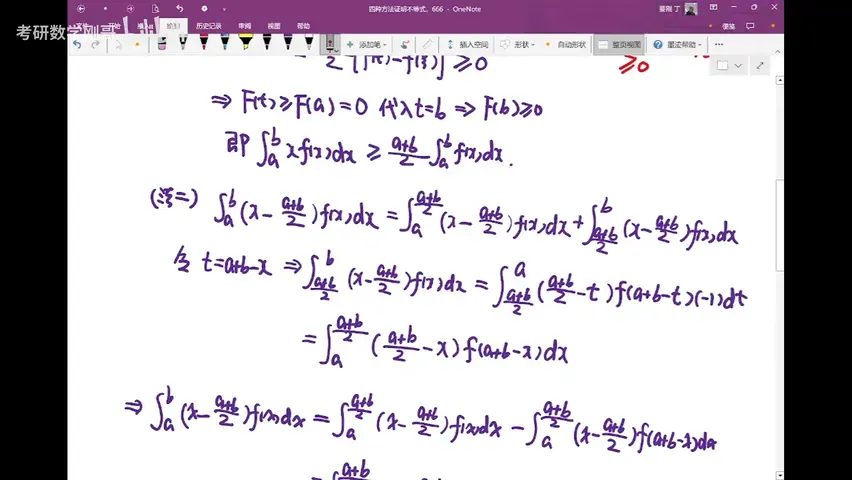 四种方法证明不等式，666 - OneNote
姜刚 丁
考研数学刚哥
开始 插入 绘图 历史记录 审阅 视图 帮助
便笺
添加笔 插入空间 形状 自动形状 整页视图 墨迹帮助
≥0
⇒ F(t)≥F(a)=0 代入t=b ⇒ F(b)≥0
即 ∫_a^b xf(x)dx ≥ (a+b)/2 ∫_a^b f(x)dx.
(法二) ∫_a^b (x - (a+b)/2) f(x)dx = ∫_a^{(a+b)/2} (x - (a+b)/2) f(x)dx + ∫_{(a+b)/2}^b (x - (a+b)/2) f(x)dx
令 t=a+b-x ⇒ ∫_{(a+b)/2}^b (x - (a+b)/2) f(x)dx = ∫_{(a+b)/2}^a ((a+b)/2 - t) f(a+b-t)(-1)dt
= ∫_a^{(a+b)/2} ((a+b)/2 - x) f(a+b-x)dx
⇒ ∫_a^b (x - (a+b)/2) f(x)dx = ∫_a^{(a+b)/2} (x - (a+b)/2) f(x)dx - ∫_a^{(a+b)/2} (x - (a+b)/2) f(a+b-x)dx